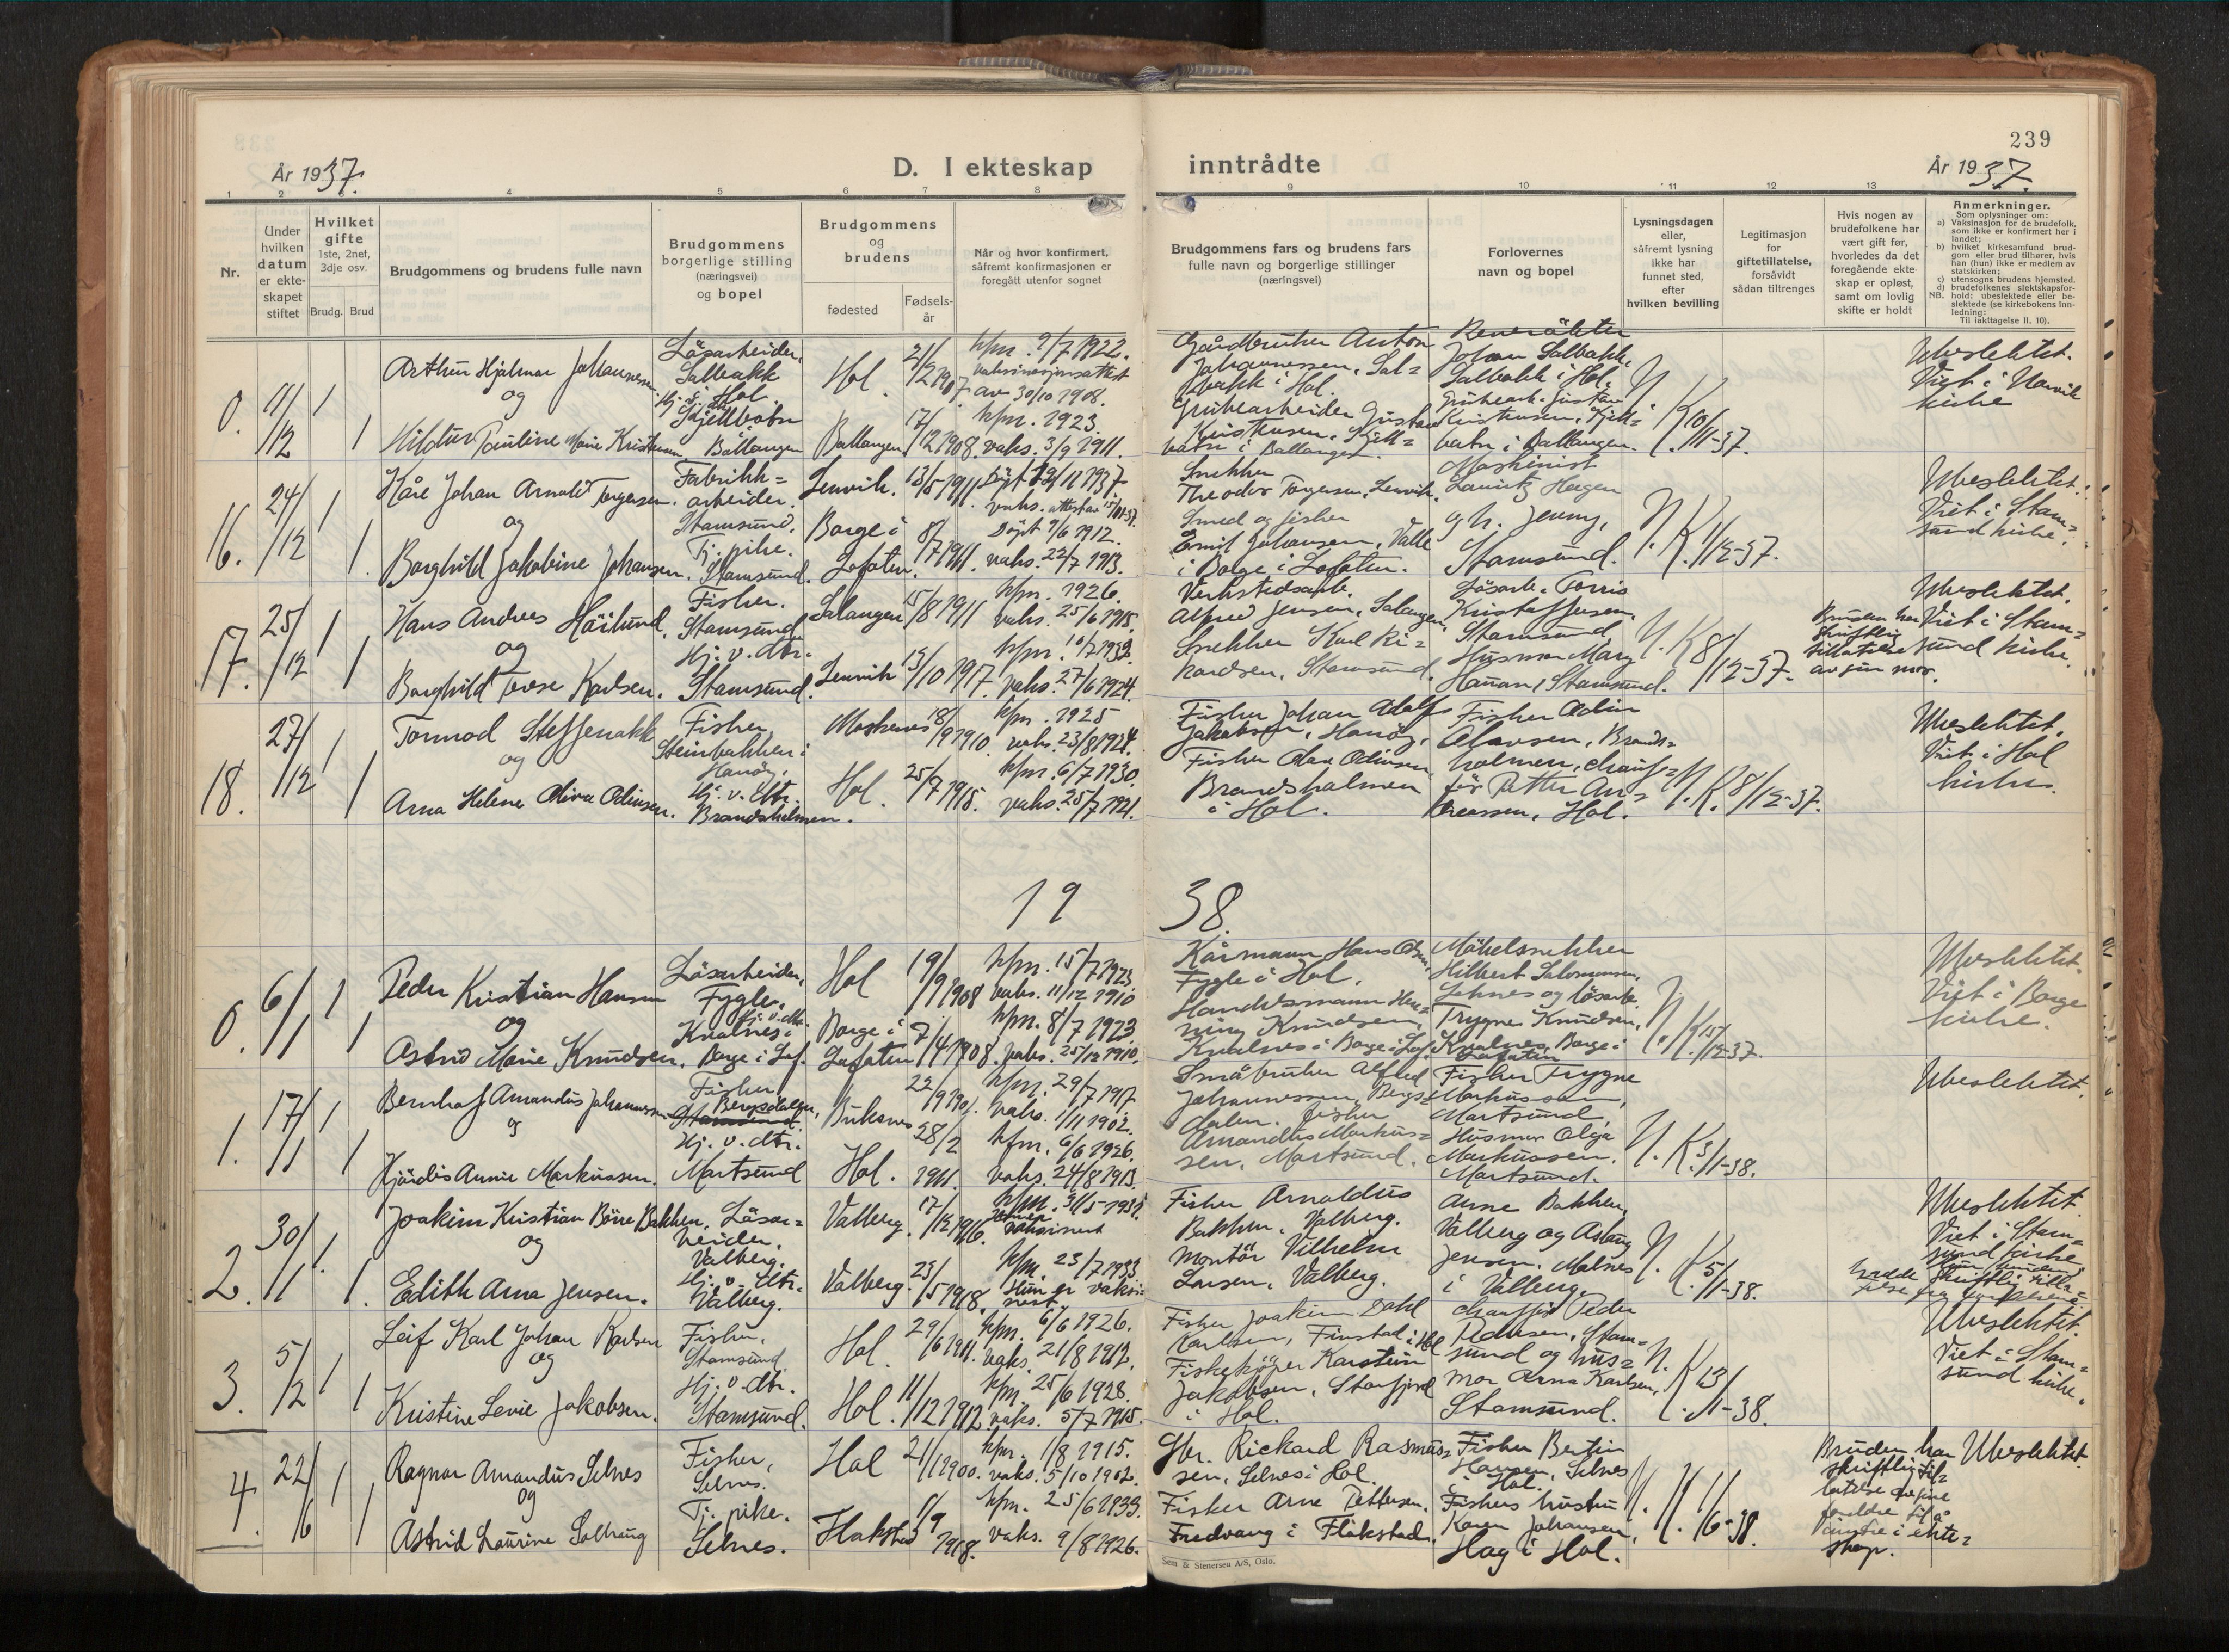 239
År 1937.
D. I ekteskap inntrådte
År 1937.
1 2 3 4 5 6 7 8 9 10 11 12 13
Nr.
Under hvilken datum er ekteskapet stiftet
Hvilket gifte
1ste, 2net, 3dje osv.
Brudg. Brud
Brudgommens og brudens fulle navn
Brudgommens borgerlige stilling (næringsvei) og bopel
Brudgommens og brudens
fødested
Fødsels-år
Når og hvor konfirmert, såfremt konfirmasjonen er foregått utenfor sognet
Brudgommens fars og brudens fars fulle navn og borgerlige stillinger (næringsvei)
Forlovernes navn og bopel
Lysningsdagen eller, såfremt lysning ikke har funnet sted, efter hvilken bevilling
Legitimasjon for giftetillatelse, forsåvidt sådan tiltrenges
Hvis nogen av brudefolkene har vært gift før, hvorledes da det foregående ekteskap er opløst, samt om lovlig skifte er holdt
Anmerkninger.
Som oplysninger om:
a) Vaksinasjon for de brudefolk, som ikke er konfirmert her i landet;
b) hvilket kirkesamfund brudgom eller brud tilhører, hvis han (hun) ikke er medlem av statskirken;
c) utensogns brudens hjemsted.
d) brudefolkenes slektskapsforhold: ubeslektede eller beslektede (se kirkebokens innledning:
NB.
Til iakttagelse II. 10).
0. 11/12 1 1
Arthur Hjalmar Johannessen
og
Hildur Pauline Marie Kristensen
Løsarbeider,
Salbakk
i Hol.
Ballangen
Hol.
Ballangen
21/2 1907.
17/12 1908.
kfn. 9/7 1922.
vaksinasjonsattest
av 30/10 1908.
kfn. 1923.
vaks. 3/9 1911.
Gårdbruker Anton
Johannessen, Sal=
bakk i Hol.
Grubearbeider Gustav
Kristensen,
i Ballangen.
Johan Salbakk,
Salbakk i Hol.
Grubearb. Gustav
Kristensen,
i Ballangen.
N. K. 10/11-37.
Ubeslektet.
Viet i Narvik
kirke
16. 24/12 1 1
Kåre Johan Arnold Torgersen.
og
Borghild Jakobine Johansen.
Fabrikk=
arbeider.
Stamsund.
Tj. pike.
Stamsund.
Lenvik.
Borge i
Lofoten.
13/5 1911.
8/7 1911.
vaks. attest av
Døpt 9/6 1912.
vaks. 22/7 1913.
Snekker
Theodor Torgersen, Lenvik.
Smed og fisker
Emil Johansen, Valle
i Borge i Lofoten.
Maskinist
Lauritz Hagen
og h. Jenny,
Stamsund.
N. K. 1/12-37.
Ubeslektet.
Viet i Stam=
sund kirke.
17. 25/12 1 1
Hans Andreas Høilund.
og
Borghild Tovse Karlsen.
Fisker.
Stamsund
Hj. v. dtr.
Stamsund.
Salangen
Lenvik
15/8 1911
13/10 1917.
kfn. 1926.
vaks. 25/6 1915.
kfn. 10/7 1932.
vaks. 27/6 1924.
Verkstedsarb.
Alfred Jensen, Salangen
Snekker Karl Ri=
kardsen, Stamsund.
Løsarb. Torris
Kristoffersen,
Stamsund,
Husmor Mary
Hanan, Stamsund.
N. K. 8/12-37.
Bruden har
skriftlig
tillatelse
av sin mor.
Ubeslektet.
Viet i Stam=
sund kirke.
18. 27/12 1 1
Tormod Steffenakk
og
Arna Helene Olivie Odinsen.
Fisker,
Steinbakken i
Hanøy,
Hj. v. dtr.
Brandsholmen.
Moskenes
Hol.
18/9 1910.
25/7 1915.
kfn. 1925
vaks. 23/8 1924.
kfn. 6/7 1930.
vaks. 25/7 1921.
Fisker Johan Adolf
Jakobsen, Hanøy,
Fisker Olav Odinsen
Brandsholmen
i Hol.
Fisker Odin
Olavsen, Brands=
holmen, chauf=
før Petter An=
dreassen, Hol.
N. K. 8/12-37.
Ubeslektet.
Viet i Hol
kirke.
1938.
0. 6/1 1 1
Peder Kristian Hansen
og
Astrid Marie Knudsen.
Løsarbeider,
Fygle.
Hj. v. dtr.
Knalnes i
Borge i Lof.
Hol
Borge i
Lofoten
19/9 1908
7/4 1908.
kfn. 15/7 1923
vaks. 11/12 1910
kfn. 8/7 1923
vaks. 25/12 1910.
Kårmann Hans Olsen,
Fygle i Hol.
Handelsmann Hen=
ning Knudsen,
Knalnes i Borge i Lof.
Møbelsnekker
Hilbert Salomonsen,
Leknes og løsarb.
Trygve Knudsen,
Knalnes, Borge i
Lofoten
N. K. 15/12-37.
Ubeslektet.
Viet i Borge
kirke.
1. 17/1 1 1
Bernhof Amandus Johannessen
og
Hjørdis Annie Markussen.
Fisker
Bergsdalen,
Stamsund.
Hj. v. dtr.
Mortsund
Buksnes
Hol.
22/9 1901.
28/2 1911.
kfn. 29/7 1917
vaks. 1/11 1902.
kfn. 6/6 1926.
vaks. 24/8 1913.
Småbruker Alfred
Johannessen, Bergs=
dalen. Fisker
Amandus Markus=
sen, Mortsund.
Fisker Trygve
Markussen,
Mortsund,
Husmor Olga
Markussen.
Mortsund.
N. K. 3/1-38.
Ubeslektet.
2. 30/1 1 1.
Joakim Kristian Bøne Bakken.
og
Edith Arna Jensen.
Løsar=
beider.
Valberg.
Hj. v. dtr.
Valberg.
Valberg.
Valberg.
17/12 1916.
23/5 1918.
kfn. 31/5 1932.
vaksinert
kfn. 23/7 1933
Hun er vaksi=
nert.
Fisker Arnoldus
Bakken, Valberg.
Montør Vilhelm
Larsen, Valberg.
Anne Bakken,
Valberg og Aslaug
Jensen, Malnes
i Valberg.
N. K. 5/1-38.
Ubeslektet.
Viet i Stam=
sund kirke.
hadde skriftlig tilla=
telse fra foreldrene.
3. 5/2 1 1
Leif Karl Johan Karlsen
og
Kristine Levie Jakobsen.
Fisker.
Stamsund.
Hj. v. dtr.
Stamsund.
Hol.
Hol.
29/6 1911.
11/12 1912.
kfn. 6/6 1926.
vaks. 21/8 1912.
kfn. 25/6 1928.
vaks. 5/7 1915.
Fisker Joakim Dahl
Karlsen, Finstad i Hol
Fiskekjøper Karstein
Jakobsen, Storfjord
i Hol.
Chauffør Peder
Pedersen, Stam=
sund og hus=
mor Arna Karlsen,
Stamsund.
N. K. 13/1-38.
Ubeslektet.
Viet i Stam=
sund kirke.
4. 22/6 1 1
Ragnar Amandus Selnes
og
Astrid Laurine Solhaug
Fisker,
Selnes.
Tj. pike.
Selnes.
Hol
Flakstad
21/1 1900.
1/9 1918.
kfn. 1/8 1915.
vaks. 5/10 1902.
kfn. 25/6 1933.
vaks. 9/8 1926.
Gbr. Rickard Rasmus=
sen, Selnes i Hol.
Fisker Arne Pettersen,
Fredvang i Flakstad.
Fisker Bertin
Hansen, Selnes
i Hol.
Fiskers hustru
Karen Johansen,
Hag i Hol.
N. K. 11/6-38.
Bruden har
skriftlig til=
latelse av sine
foreldre til å
inntre i ekte=
skap.
Ubeslektet.
Sem & Stenersen A/S, Oslo.